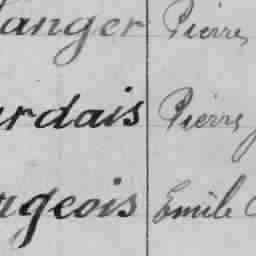 langer Pierre
urdais Pierre
rgeois Emile